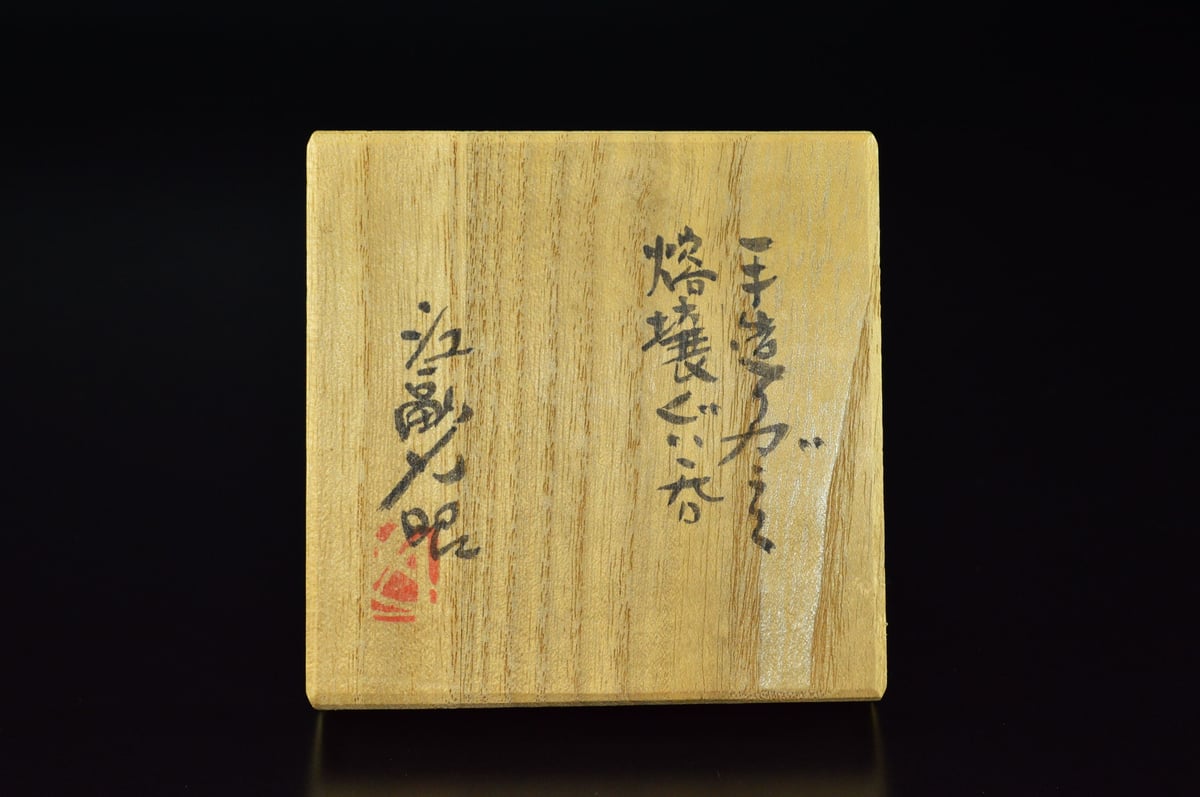 手造りガラス
熔壌ぐい呑
江副光昭